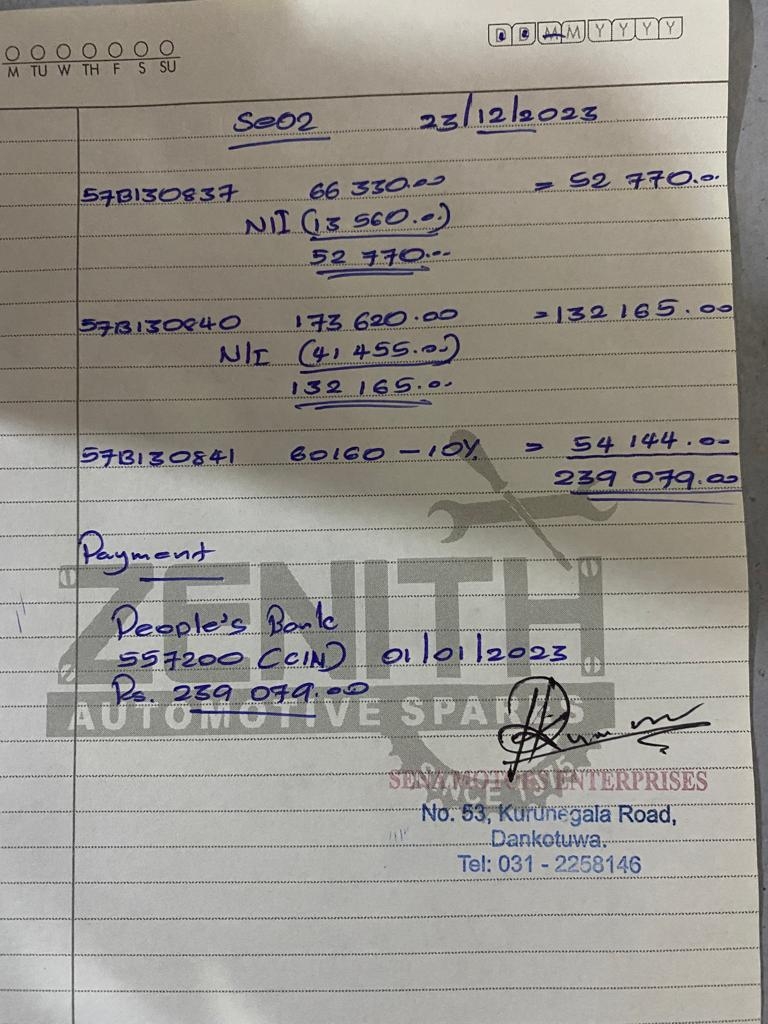 D D M M Y Y Y Y
M TU W TH F S SU
Se02 23/12/2023
57B130837 66 330.00 = 52 770.00
N/I (13 560.00)
52 770.00
57B130840 173 620.00 = 132 165.00
N/I (41 455.00)
132 165.00
57B130841 60160 - 10% = 54 144.00
239 079.00
Payment
ZENITH
People's Bank
557200 (CIN) 01/01/2023
Rs. 239 079.00
AUTOMOTIVE SPARES
SENA MOTORS ENTERPRISES
SINCE 1975
No. 53, Kurunegala Road,
Dankotuwa.
Tel: 031 - 2258146